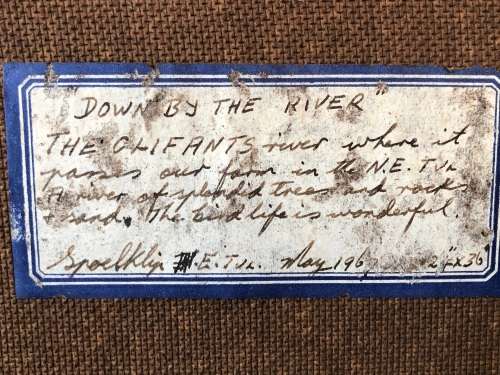 "DOWN BY THE RIVER"
THE OLIFANTS river where it
passes our farm in the N.E. TVL
A river of splendid trees and rocks
& sand. The bird life is wonderful.
Spoelklip N.E. TVL. May 196